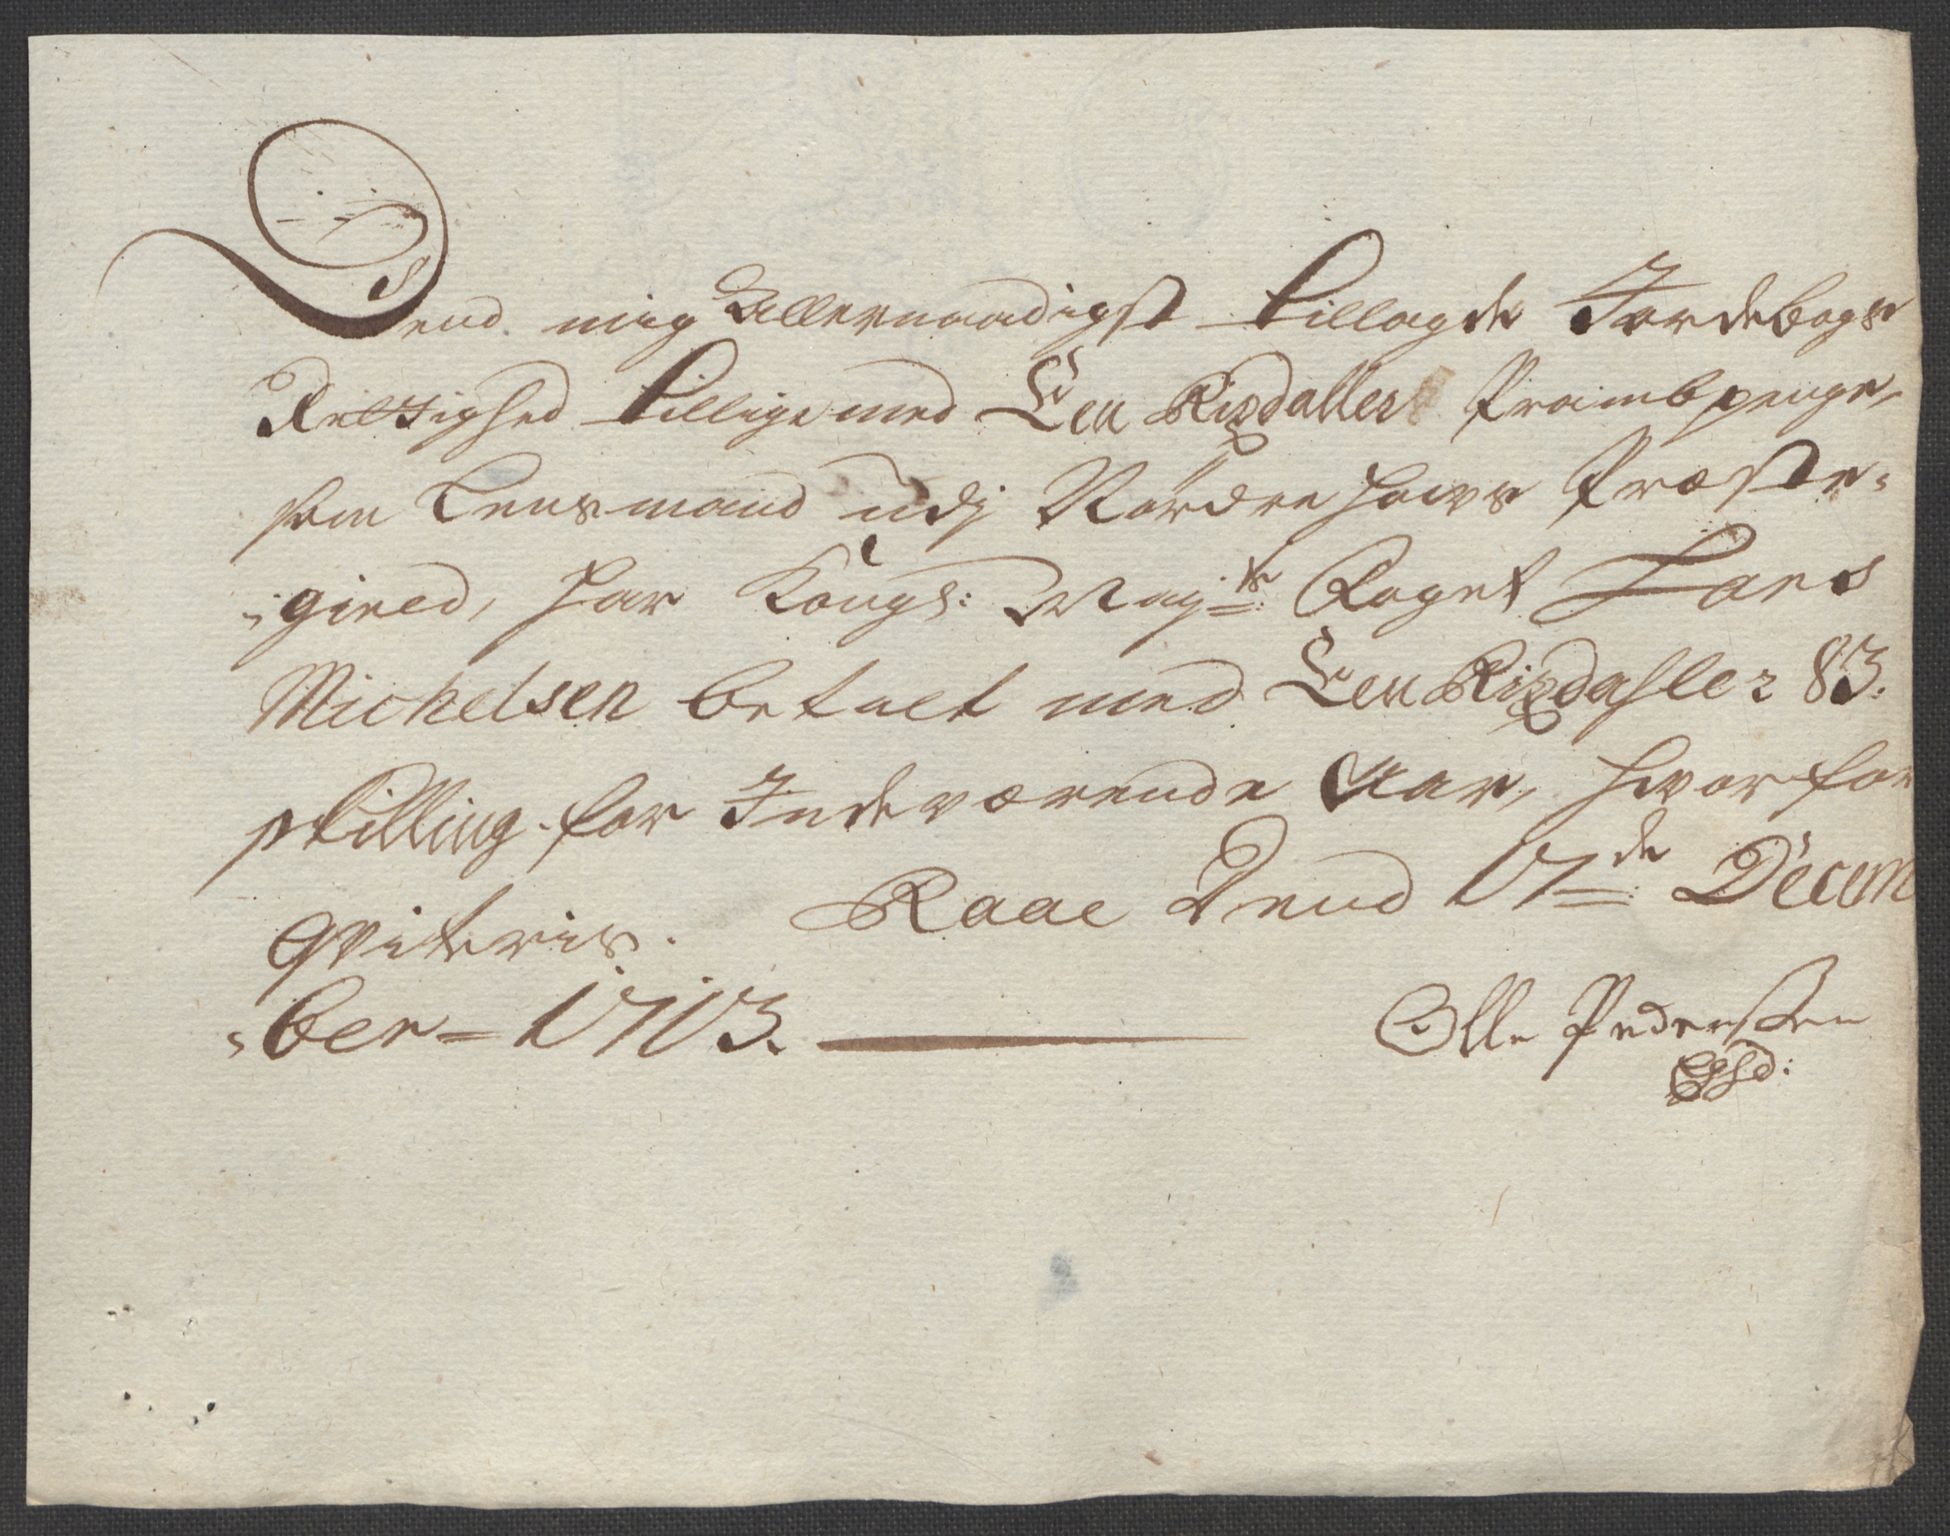 Dend mig Allernaadigst tillagde Jordebogs
Rettighed tillige med Een Rixdaller Prambpenge,
som Lensmand udj Nordrehougs Præste-
-gield, har Kongs: Maj:ts Foget Lars
Michelsen betalt med Een Rixdahler 83.
skilling for Indeværende Aar, hvorfor
qviteris. Raae Dend 17de Decem
-ber- 1713.
Olle Pedersen
Eghd: